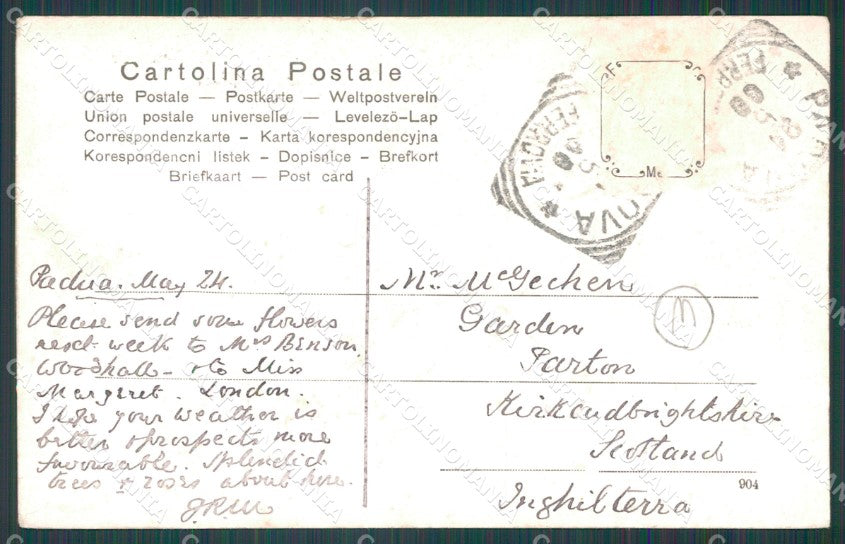 Cartolina Postale
Carte Postale — Postkarte — Weltpostverein
Union postale universelle — Levelezö-Lap
Correspondenzkarte - Karta korespondencyjna
Korespondencni listek - Dopisnice - Brefkort
Briefkaart — Post card
PADOVA
FERROVIA
Padua. May 24.
Please send some flowers
next week to Mrs BENSON
Woodhall - & to Miss
Margaret. London.
I hope your weather is
better & prospects more
favourable. Splendid
trees & roses about here.
Mr. McGechen
Garden
Parton
Kirkcudbrightshire
Scotland
Inghilterra
904
CARTOLINOMANIA